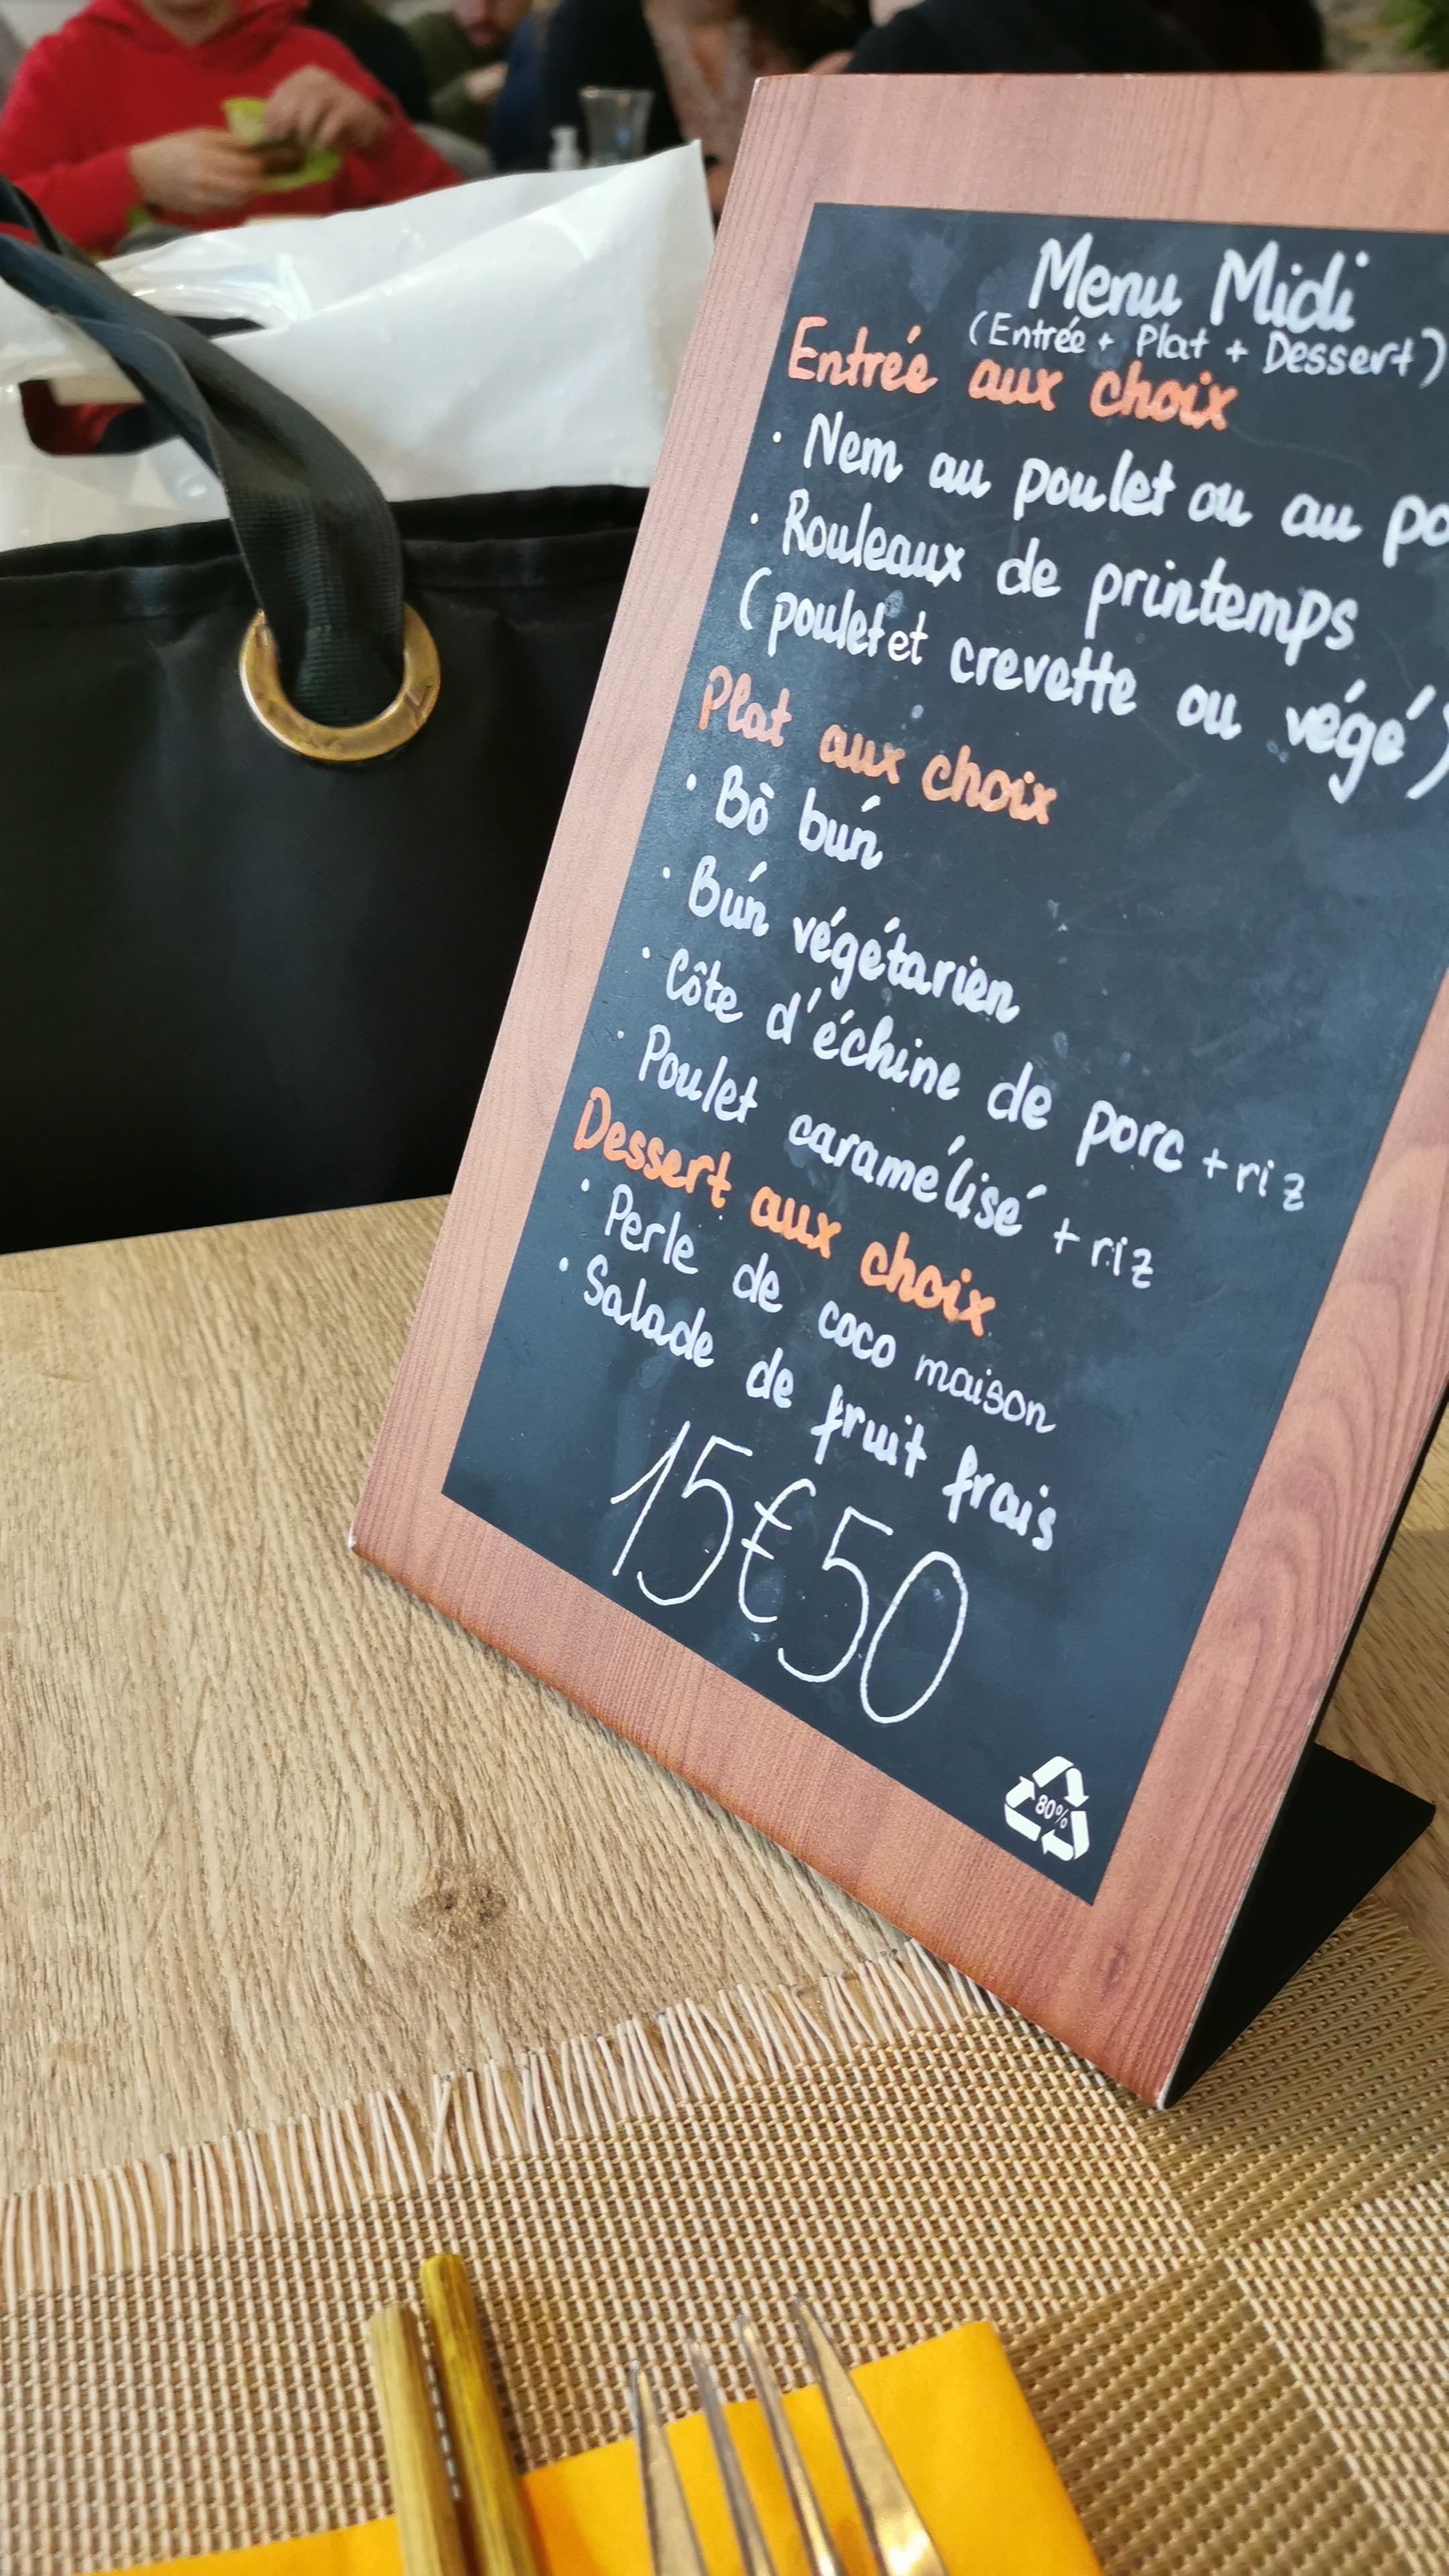 Menu Midi
(Entrée + Plat + Dessert)
Entrée aux choix
· Nem au poulet ou au
· Rouleaux de printemps
(poulet et crevette ou végé)
Plat aux choix
· Bò bún
· Bún végétarien
· Côte d'échine de porc + riz
· Poulet caramélisé + riz
Dessert aux choix
· Perle de coco maison
· Salade de fruit frais
15€50
80%